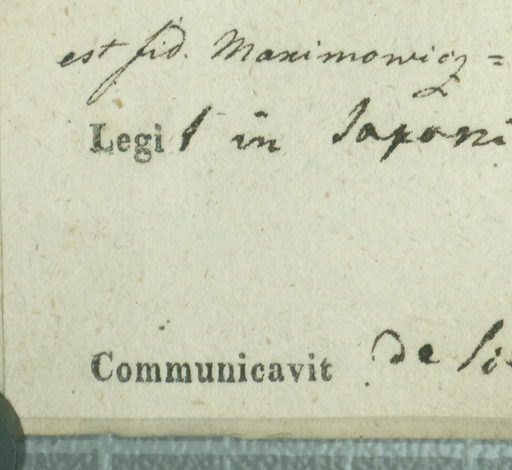 est fid. Maximowicz =
Legit in Japoni
Communicavit de Si